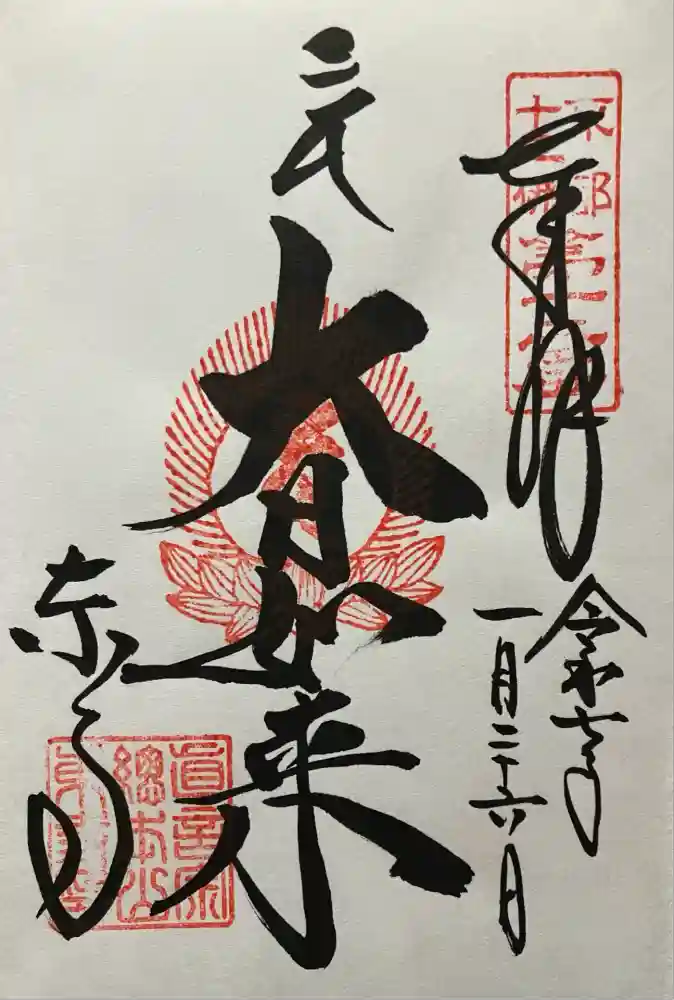 京都
十三佛
第十二番
奉拝
令和七年
一月二十六日
大日如来
東寺
眞言宗
總本山